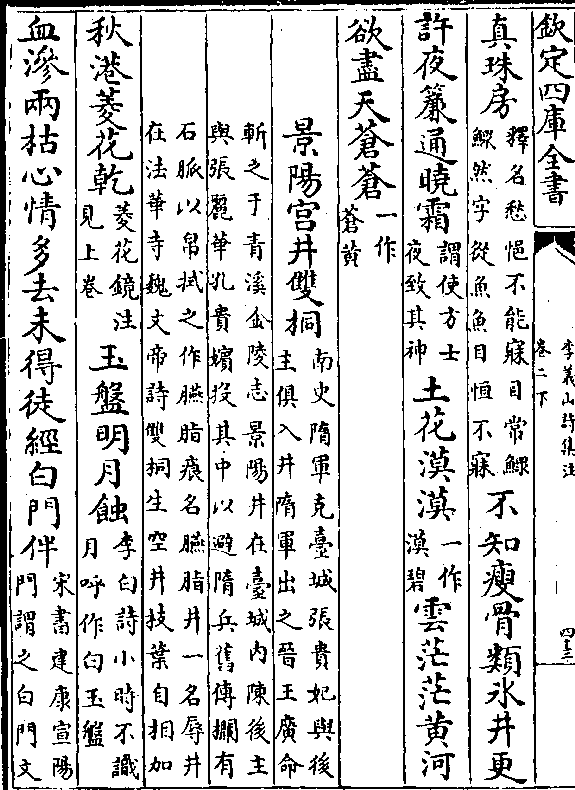 欽定四庫全書
李義山詩集注
卷二下
四十三
真珠房釋名愁悒不能寐目常鰥
鰥然字從魚魚目恒不寐不知瘦骨類氷井更
許夜簾通曉霜謂使方士
夜致其神土花漠漠一作
漠碧雲茫茫黄河
欲盡天蒼蒼一作
蒼黄
景陽宫井雙桐南史隋軍克臺城張貴妃與後
主俱入井隋軍出之晉王廣命
斬之于青溪金陵志景陽井在臺城内陳後主
與張麗華孔貴嬪投其中以避隋兵舊傳欄有
石脈以帛拭之作臙脂痕名臙脂井一名辱井
在法華寺魏文帝詩雙桐生空井技葉自相加
秋港菱花乾菱花鏡注
見上卷玉盤明月蝕李白詩小時不識
月呼作白玉盤
血滲兩枯心情多去未得徒經白門伴宋書建康宣陽
門謂之白門文